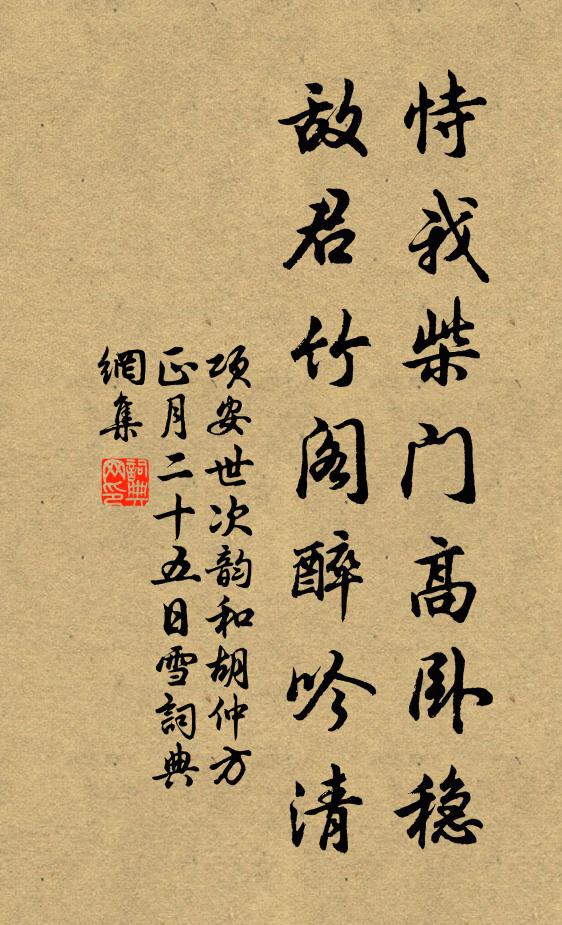 恃我柴门高卧稳
敌君竹阁醉吟清
项安世次韵和胡仲方
正月二十五日雪詞典
網集
詞典
网印